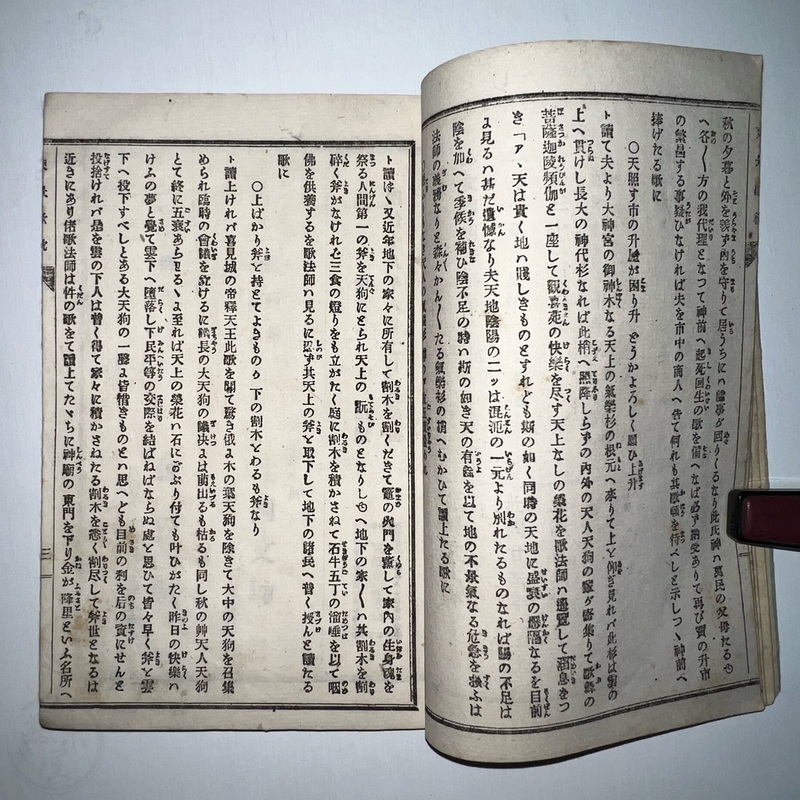 秋の夕暮と外を睽ず内を守りて居うちにハ
へ各〳〵方の我代理となつて神前へ起死回生の歌を備へなば必ず納受ありて再び寳の升市
の繁昌する事疑ひなければ夫を市中の商人へ告て何れも其歌頼を待べしと示しつゝ神前へ
捧げたる歌に
〇天照す市の升屋が困り升 どうかよろしく願ひ上升
ト讀て夫より大神宮の御神木なる天上の氣樂杉の根元へ來りて上を仰ぎ見れバ此杉は雲の
上へ貫けし長大の神代杉なれば此梢へ照降しらずの内外の天人天狗の家が密集りて
菩薩迦陵頻伽と一座して觀喜苑の快樂を尽す天上なしの榮花を歌法師ハ遙覽して溜息をつ
き「アヽ天は貴く地ハ賤しきものとすれども斯の如く同時の天地に盛衰の懸隔なるを目前
よ見るハ甚だ遺憾なり夫天地陰陽の二ツは混沌の一元より別れたるものなれば陽の不足は
陰を加へて季候を補ひ陰不足の時ハ斯の如き天の有餘を以て地の不景氣なる危急を救ふは
法師の義務なりと
たる氣樂杉の梢へむかひて讀上たる歌に
ト讀けバ又近年地下の家々に所有して割木を割くだきて竈の火門を塞して家内の生身魂を
祭る人間第一の斧を天狗にとられ天上の翫ものとなりし
へ地下の家〳〵ハ其割木を割
碎く斧がなければ三食の燈りをも立がたく庭に割木を積かさねて石牛五丁の溜唾を以て咽
佛を供養するを歌法師ハ見るに忍ず其天上の斧を取下して地下の諸民へ普く授んと讀たる
歌に
〇上ばかり斧を持とてよきものか 下の割木をわるも斧なり
ト讀上ければ喜見城の帝釋天王此歌を聞て驚き俄よ木の葉天狗を除きて大中の天狗を召集
められ臨時の會議を立けるに議長の大天狗の議决よは萌出るも枯るも同し秋の艸天人天狗
とて終に五衰あらはるゝよ至れば天上の榮花ハ石にかぶり付ても叶ひがたく昨日の快樂ハ
けふの夢と覺て雲下へ墮落し下民平等の交際を結ばねばならぬ處と思ひて皆々早く斧を雲
下へ投下すべしとある大天狗の一聲よ皆惜きものとハ思へども目前の利を后の資にせんと
投捨けれバ是を雲の下人は普く得て家々に積かさねたる割木を悉く割尽して斧世となるは
近きにあり偖歌法師は件の歌をて讀上てたゞちに神廟の東門を下り金が降里といふ名所へ
三